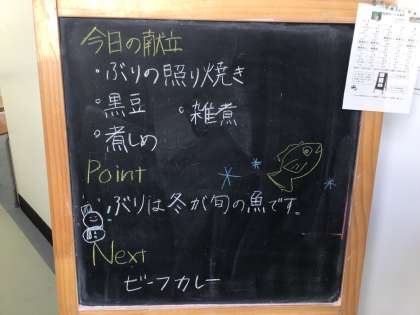 今日の献立
・ぶりの照り焼き
・黒豆 ・雑煮
・煮しめ
Point
・ぶりは冬が旬の魚です。
Next
ビーフカレー